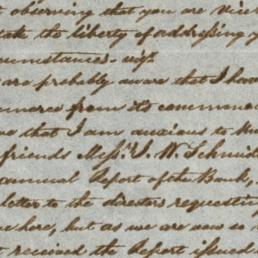 observing that you are Vice
take the liberty of addressing y
circumstances - viz.
are probably aware that I hav
from its commenc
so that I am anxious to
friends Messrs. J. W. Schmid
annual Report of the Bank,
letter to the directors requesting
where, but as we are now so
received the Report issued